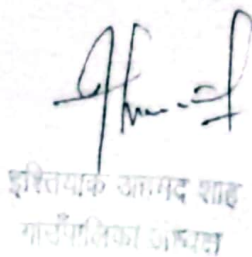 इस्तियाक अहमद शाह
गाउँपालिका अध्यक्ष